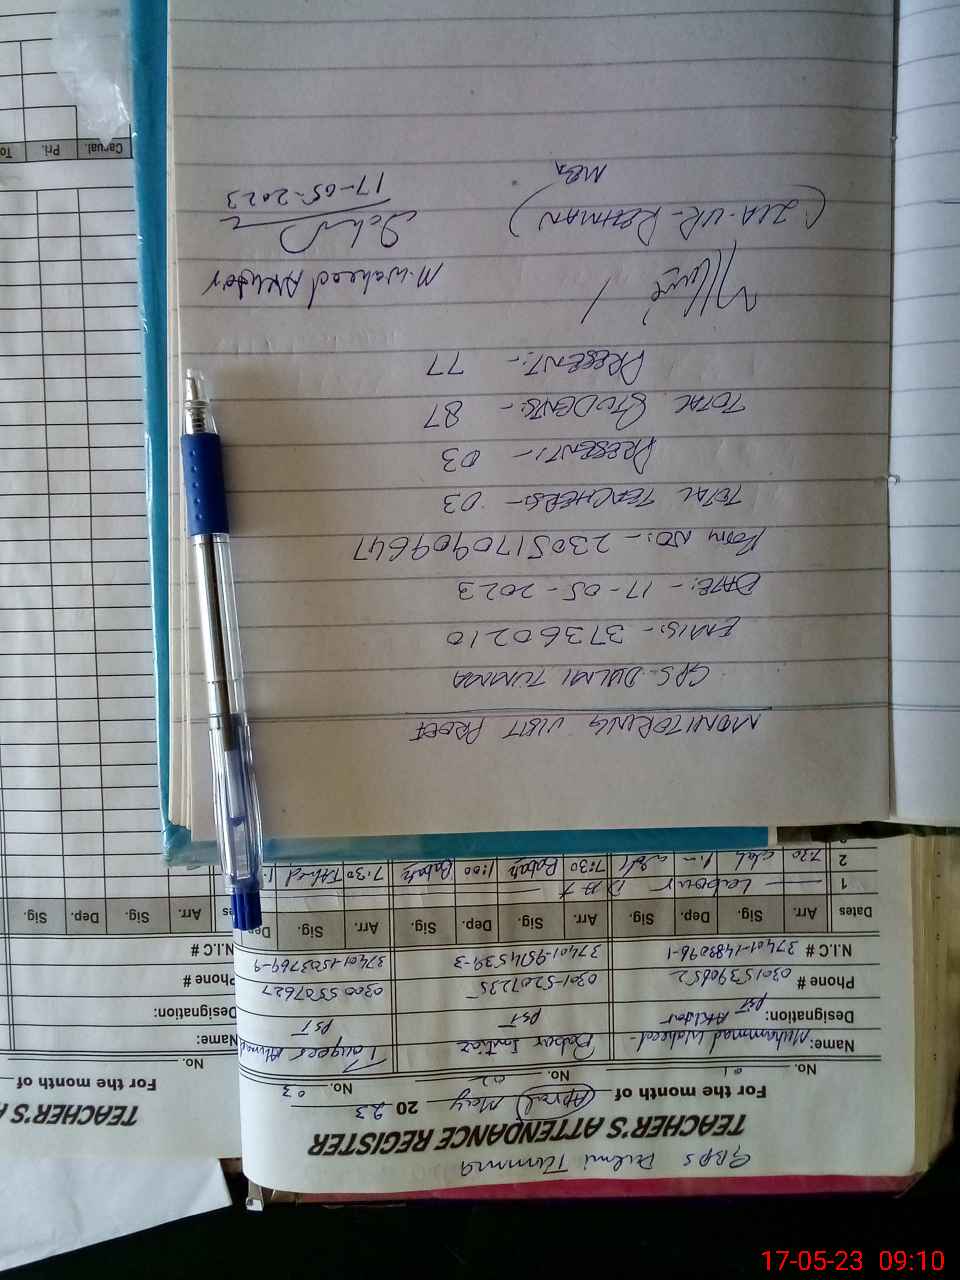 MONITORING VISIT PROOF
GPS DULMI TUMMA
EMIS:- 37360210
DATE:- 17-05-2023
FORM NO:- 2305170909647
TOTAL TEACHERS:- 03
PRESENT:- 03
TOTAL STUDENTS:- 87
PRESENT:- 77
M. Waheed Akhter
(ZIA-UR-REHMAN)
17-05-2023
MEA
GBPS Dulmi Tumma
TEACHER'S ATTENDANCE REGISTER
For the month of (April) May 2023
No. 01 No. 02 No. 03
Name: Muhammad Waheed Akhter Babar Imtiaz Tauqeer Ahmed
Designation: PST PST PST
Phone # 03015390652 0301-5207235 0300 5507627
N.I.C # 37401-1489096-1 37401-9514539-3 37401-1503769-9
Dates Arr. Sig. Dep. Sig. Arr. Sig. Dep. Sig. Arr. Sig. Dep.
1 Labour Day
2 7:30 7:30 Babar 1:00 Babar 7:30
TEACHER'S A
For the month of
No.
Name:
Designation:
Phone #
N.I.C #
es Arr. Sig. Dep. Sig. Arr. Sig.
Casual. Pri. To
17-05-23 09:10